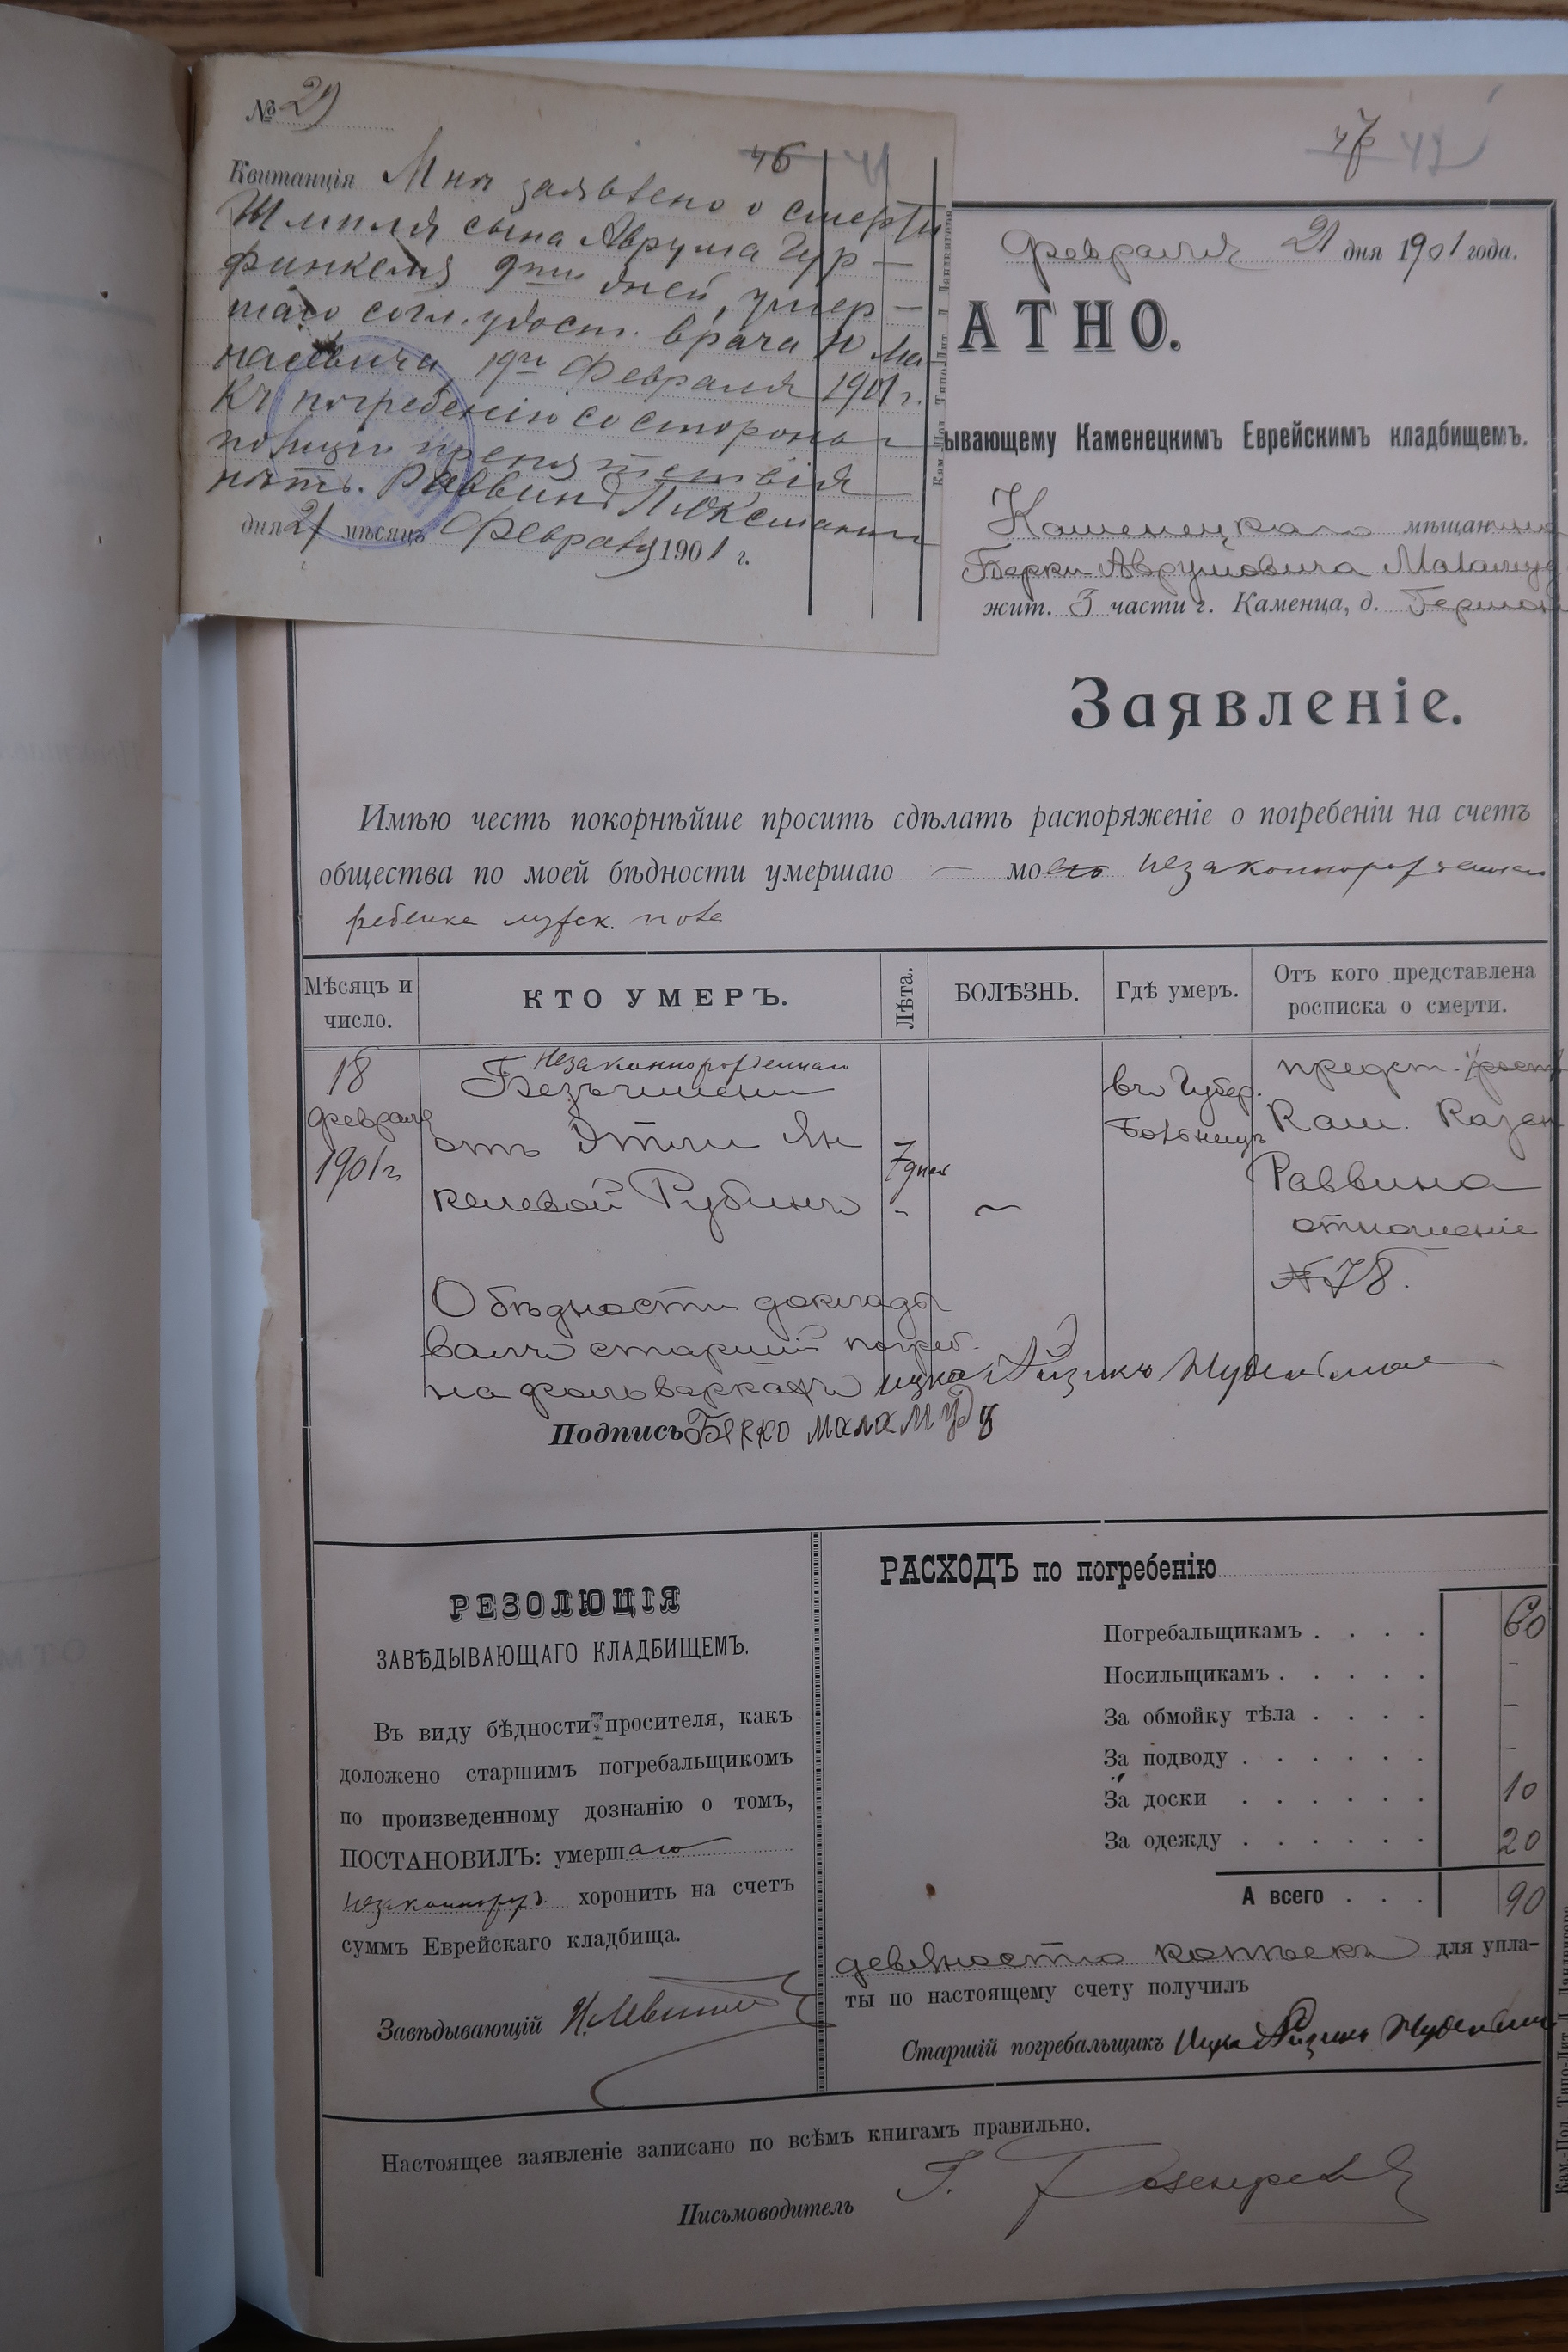 № 29
46 41
Квитанція Мнѣ заявлено о смерти
Шмиля сына Аврума Гур-
финкеля 9ти дней, умер-
шаго согл. удост. врача Ю Ма
насевича, 19го Февраля 1901 г.
Къ погребенію со стороны
полиціи препятствія
нѣтъ. Раввинъ
дня 21 мѣсяцъ Февраля 1901 г.
47 42
Февраля 21 дня 1901 года.
АТНО.
ывающему Каменецкимъ Еврейскимъ кладбищемъ.
Каменецкаго мѣщанина
Берки Аврумовича Маламуд
жит. 3 части г. Каменца, д. Гершк
Заявленіе.
Имѣю честь покорнѣйше просить сдѣлать распоряженіе о погребеніи на счетъ
общества по моей бѣдности умершаго — моего незаконнорожденнаго
ребенка мужск. пола
Мѣсяцъ и число.
КТО УМЕРЪ.
Лѣта.
БОЛѢЗНЬ.
Гдѣ умеръ.
Отъ кого представлена росписка о смерти.
18 Февраля 1901 г
Незаконнорожденнаго
Безъ имени
отъ Этли Ян
келевой Рубинъ
7 дней
въ Губер.
Больницѣ
предст.
Кам. Казен
Раввина
отношеніе
№ 78.
О бѣдности докляды
валъ старшій погреб.
на фольваркахъ Ицко Айзикъ Нудельман
Подпись Берко маламудъ
РЕЗОЛЮЦІЯ
ЗАВѢДЫВАЮЩАГО КЛАДБИЩЕМЪ.
Въ виду бѣдности просителя, какъ
доложено старшимъ погребальщикомъ
по произведенному дознанію о томъ,
ПОСТАНОВИЛЪ: умершаго
незаконнорож. хоронить на счетъ
суммъ Еврейскаго кладбища.
Завѣдывающій
РАСХОДЪ по погребенію
Погребальщикамъ . . . . 60
Носильщикамъ . . . . . -
За обмойку тѣла . . . . -
За подводу . . . . . . -
За доски . . . . . . 10
За одежду . . . . . . 20
А всего . . . 90
девяносто копѣекъ для упла-
ты по настоящему счету получилъ
Старшій погребальщикъ Ицко Айзикъ Нудельман
Настоящее заявленіе записано по всѣмъ книгамъ правильно.
Письмоводитель